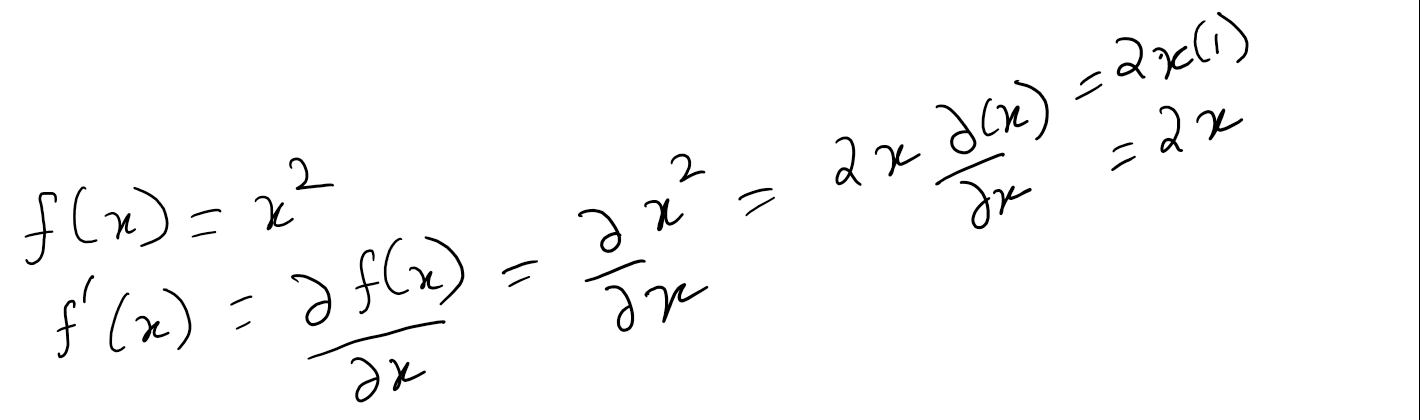 f(x) = x²
f'(x) = ∂f(x)/∂x = ∂x²/∂x = 2x ∂(x)/∂x = 2x(1)
= 2x